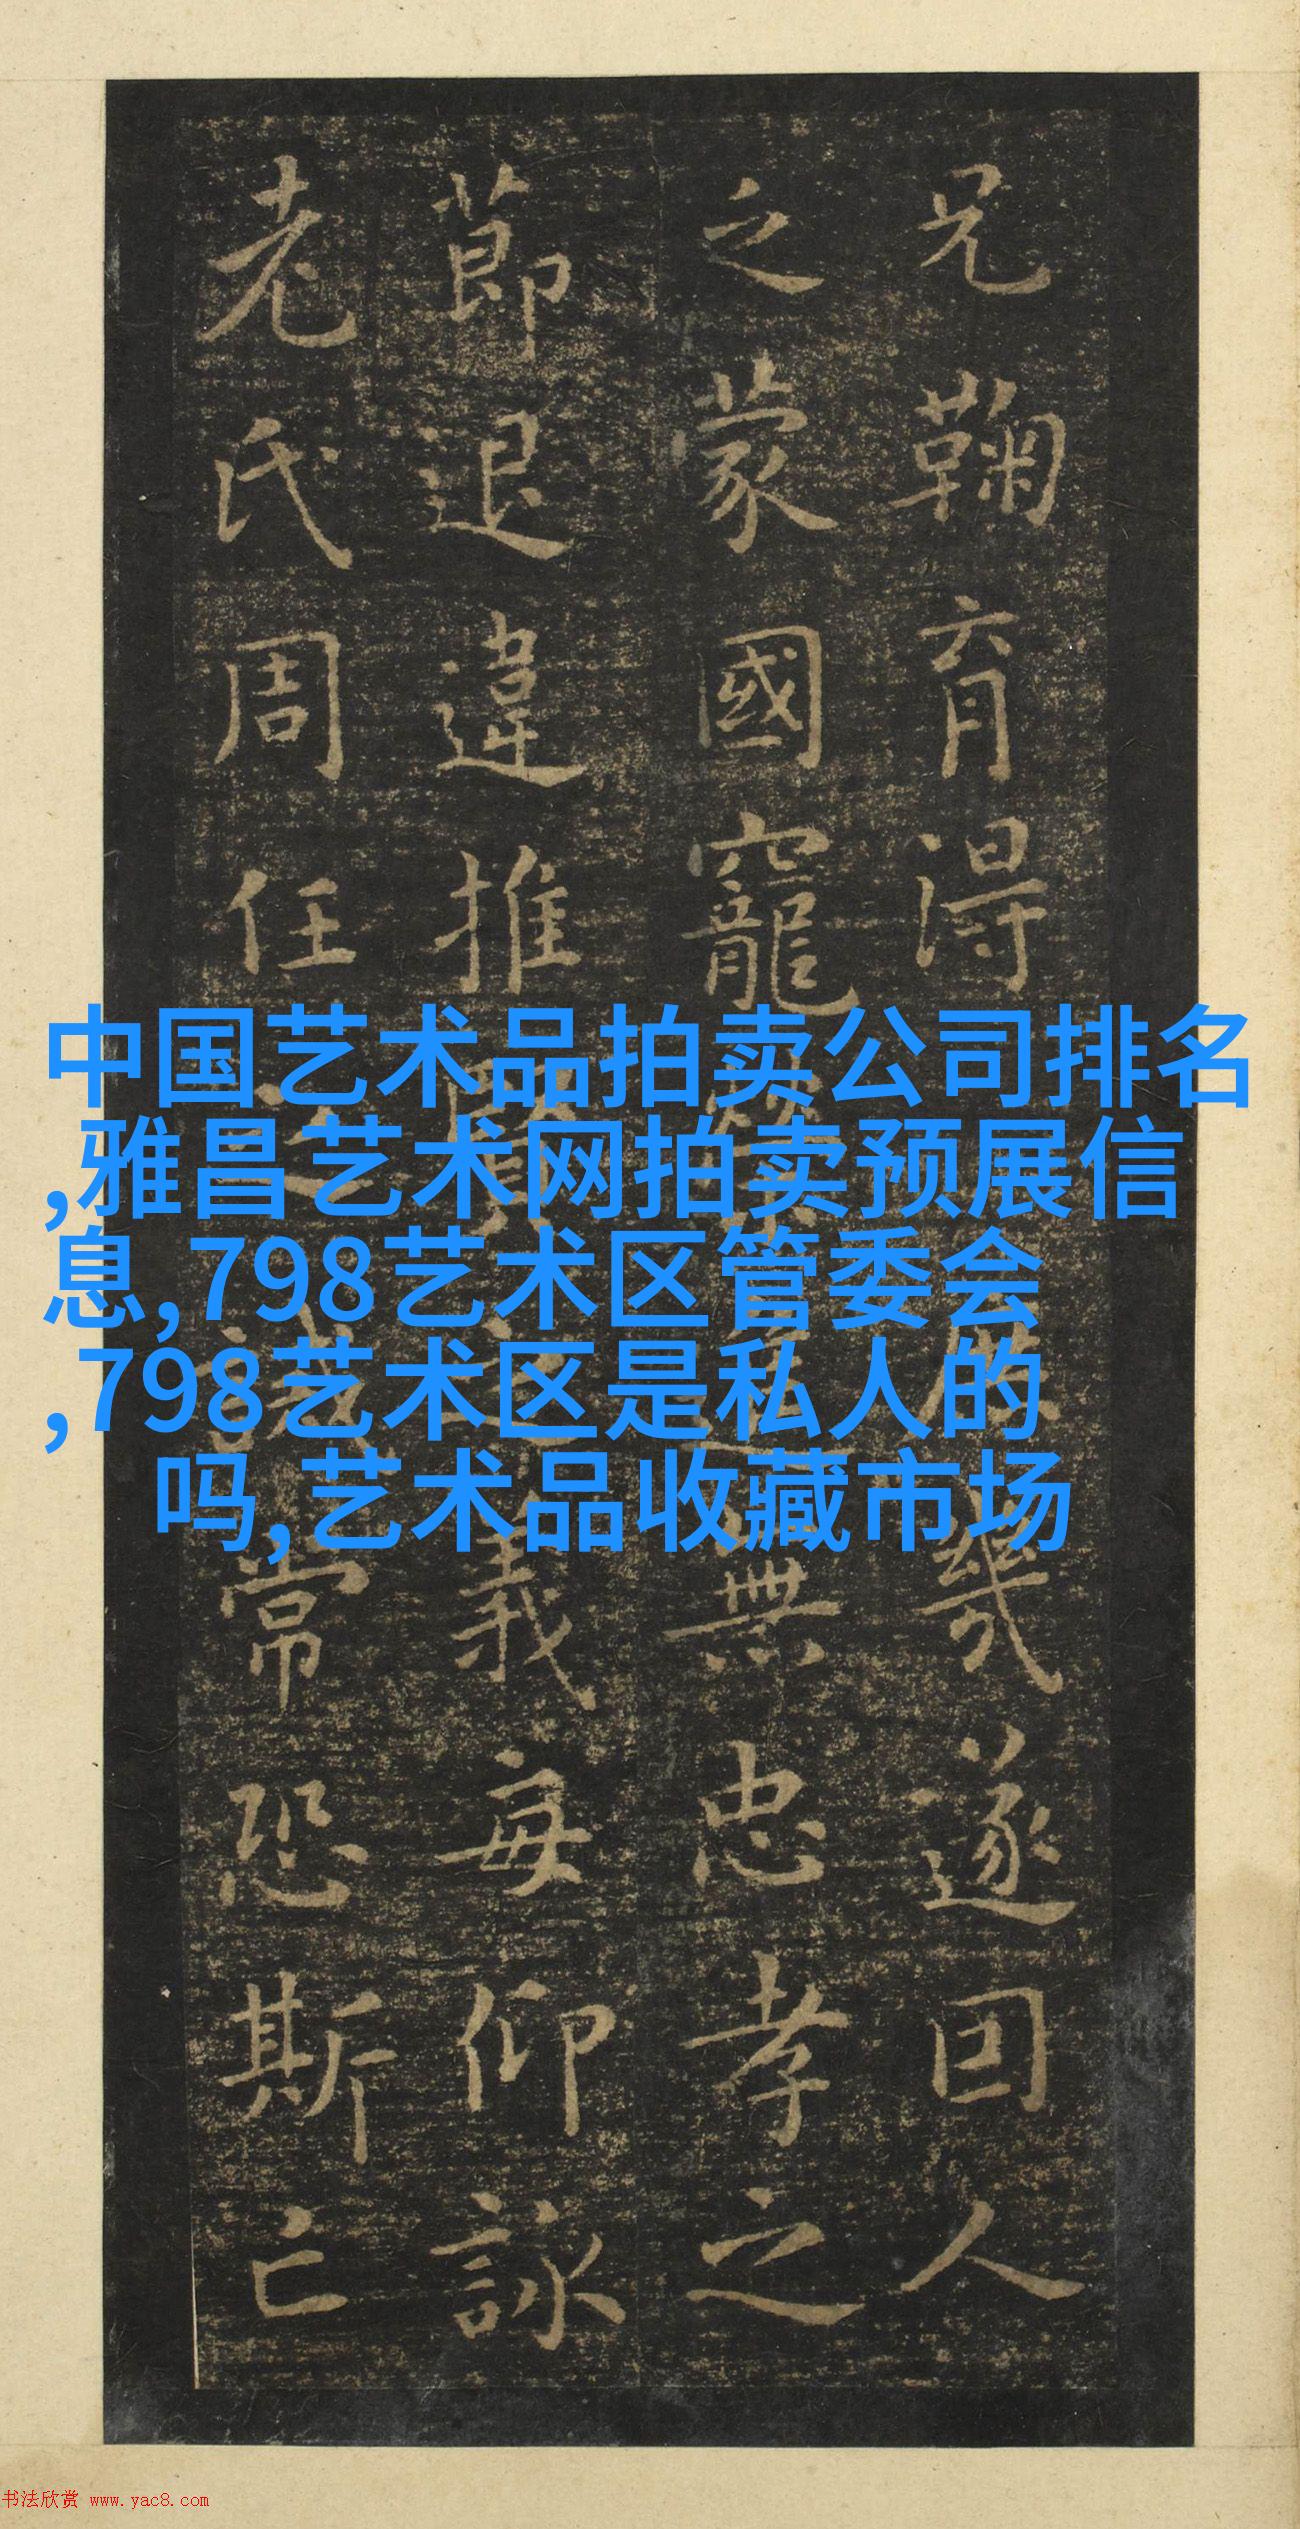 兄鞠育得幾遂回人
之蒙國寵榮迄無忠孝之
莭退違推賢之義每仰詠
老氏周任之誡常恐斯亡
中国艺术品拍卖公司排名
,雅昌艺术网拍卖预展信
息,798艺术区管委会
,798艺术区是私人的
吗,艺术品收藏市场
书法欣赏 www.yac8.com